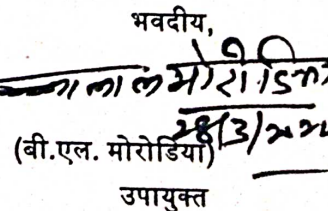 भवदीय,
लाल मोरोडिया
28/3/
(बी.एल. मोरोडिया)
उपायुक्त